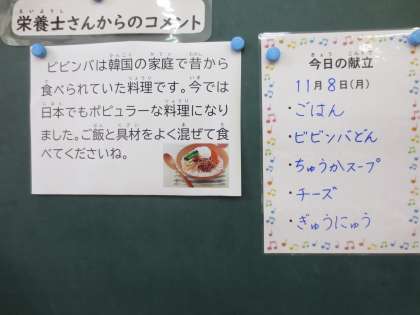 栄養士さんからのコメント
ビビンバは韓国の家庭で昔から
食べられていた料理です。今では
日本でもポピュラーな料理になり
ました。ご飯と具材をよく混ぜて食
べてくださいね。
今日の献立
11月8日(月)
・ごはん
・ビビンバどん
・ちゅうかスープ
・チーズ
・ぎゅうにゅう